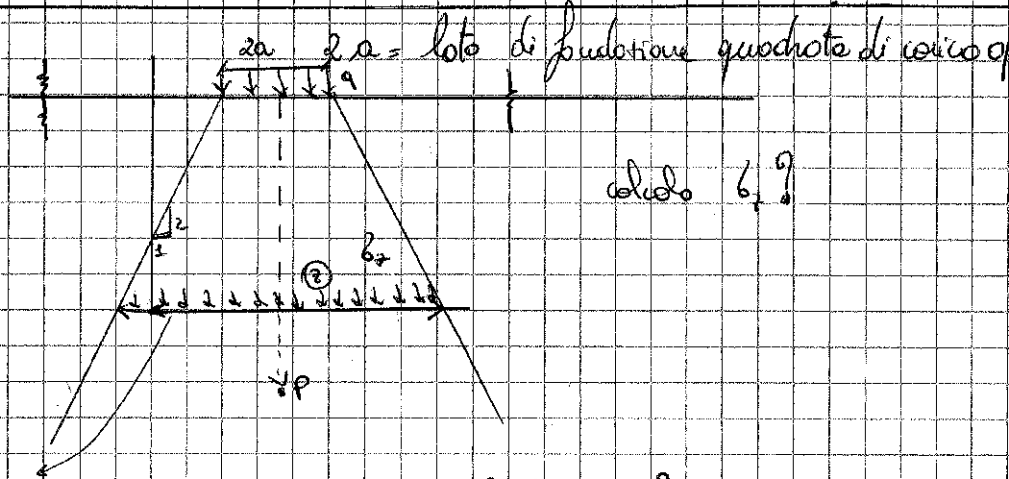 2a 2a = lato di fondazione quadrata di carico q
q
calcolo σz ?
2
1
σz
z
P